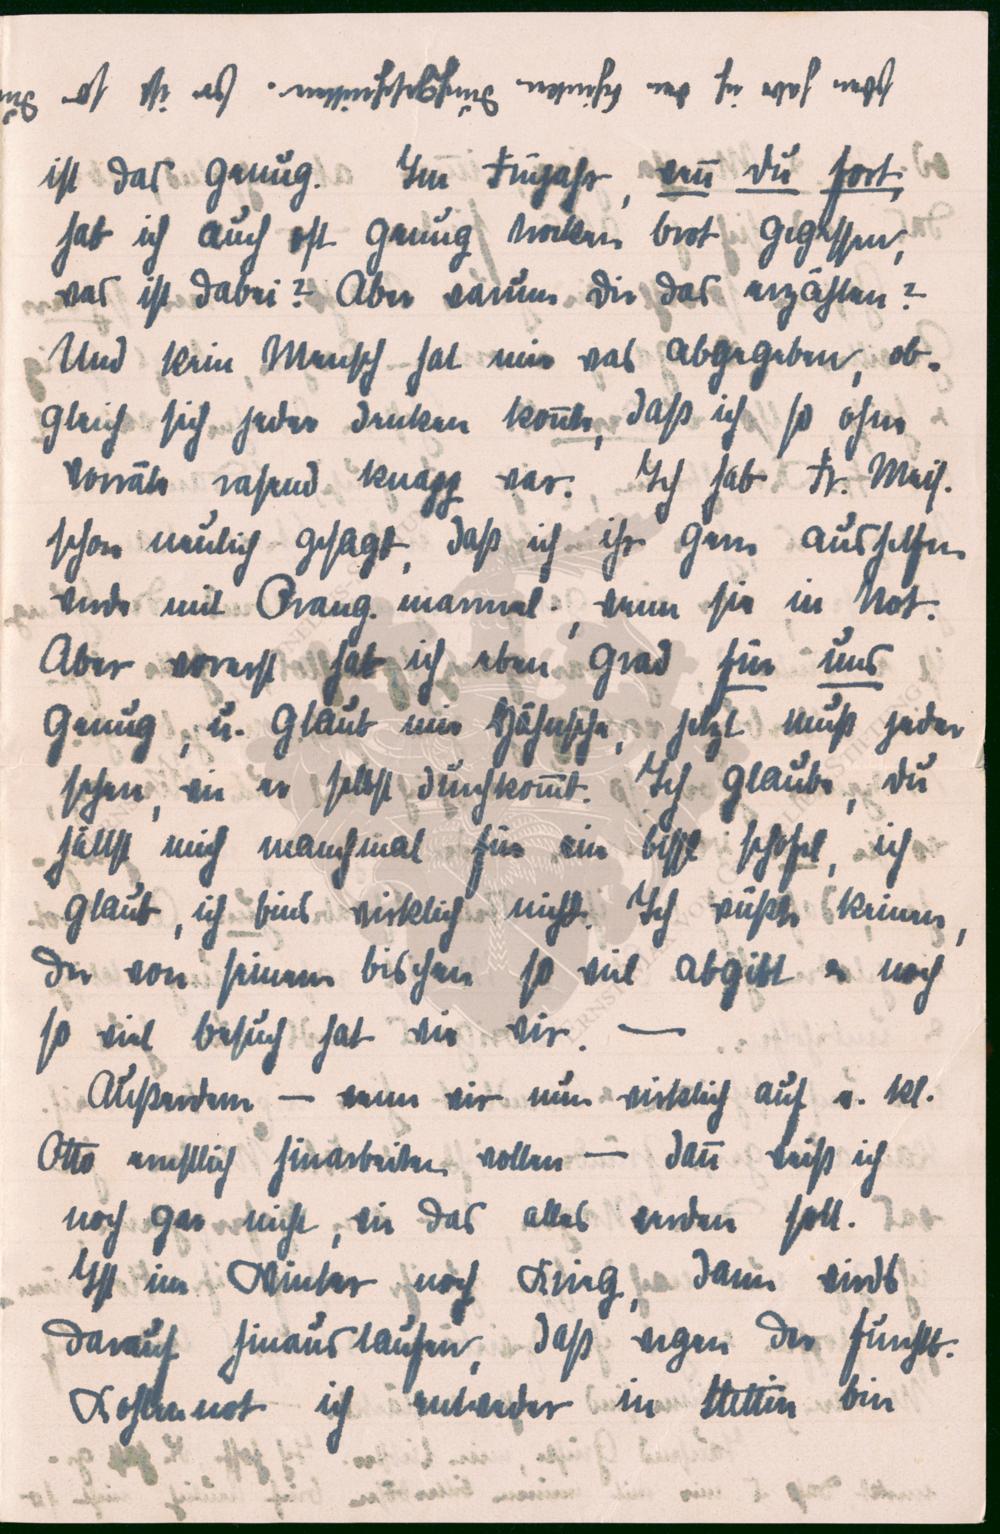 eben habe ich den Schinken durchgeschnitten. Es ist ja
ist das genug. Im Frühjahr, wenn du fort,
hab ich auch oft genug trocken brot gegessen,
was ist dabei? Aber warum dir das erzählen?
Und kein Mensch hat mir was abgegeben, ob-
gleich sich jeder denken konnte, daß ich so ohne
vorräte rasend knapp war. Ich hab Fr. Meis.
schon neulich gesagt, daß ich ihr gern aushelfen
werde mit Orang. marmel., wenn sie in Not.
Aber vorerst hab ich eben grad für uns
genug, u. glaub mir Höhnsche, jetzt muß jeder
sehen, wie er selbst durchkommt. Ich glaube, du
hältst mich manchmal für ein bissl schofel, ich
glaub, ich bins wirklich nicht. Ich wüßte keinen,
der von seinem bischen so viel abgibt u noch
so viel besuch hat wie wir. —
Außerdem — wenn wir nun wirklich auf e. kl.
Otto ernstlich hinarbeiten wollen — dann weiß ich
noch gar nicht, wie das alles werden soll.
Ist im Winter noch Krieg, dann wirds
darauf hinauslaufen, daß wegen der furchtb.
Kohlennot ich entweder in Stettin bin